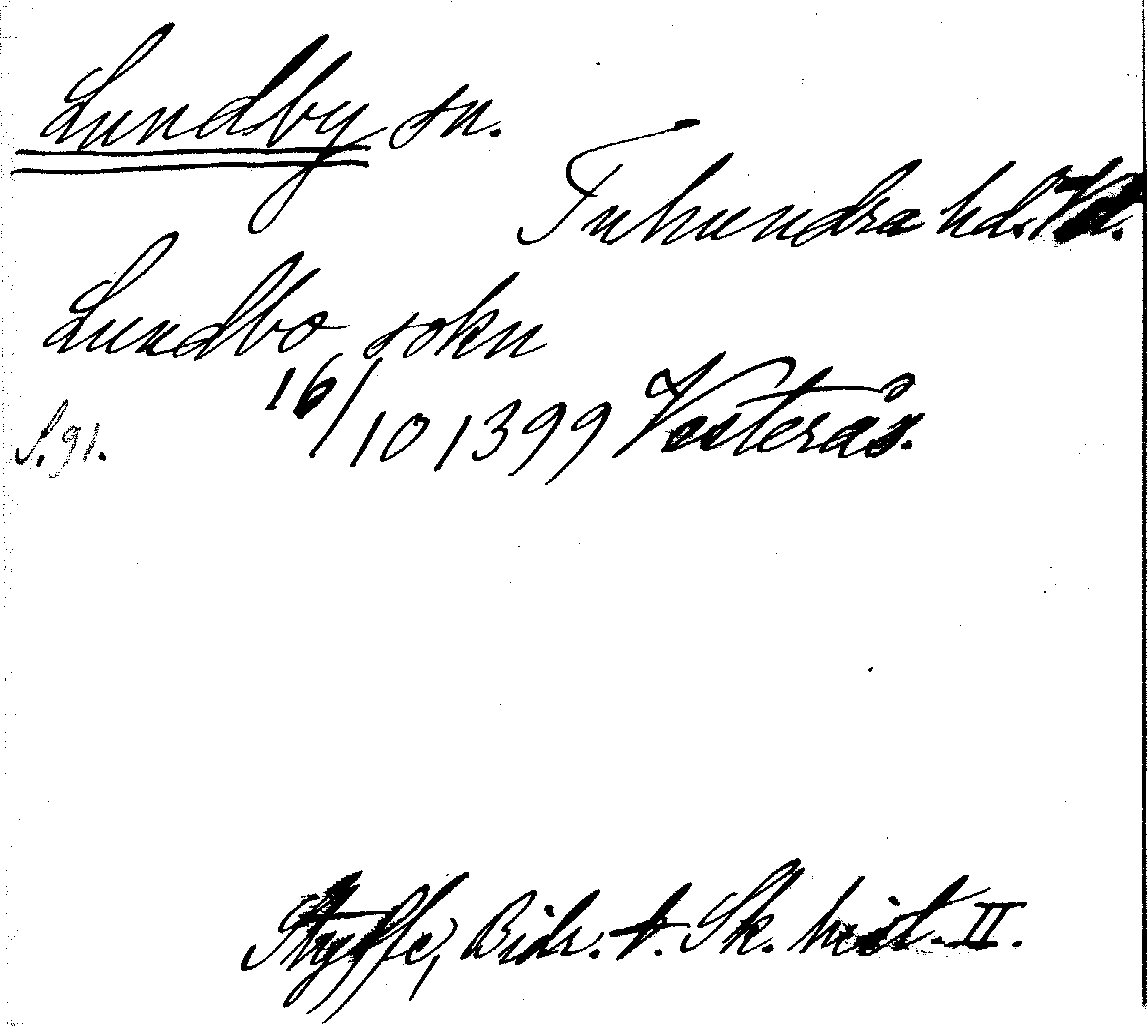 Lundby sn.
Tuhundra hd. Vstm.
Lundbo sokn
16/10 1399 Vesterås.
S. 91.
Styffe, Bidr. t. Sk. hist. II.